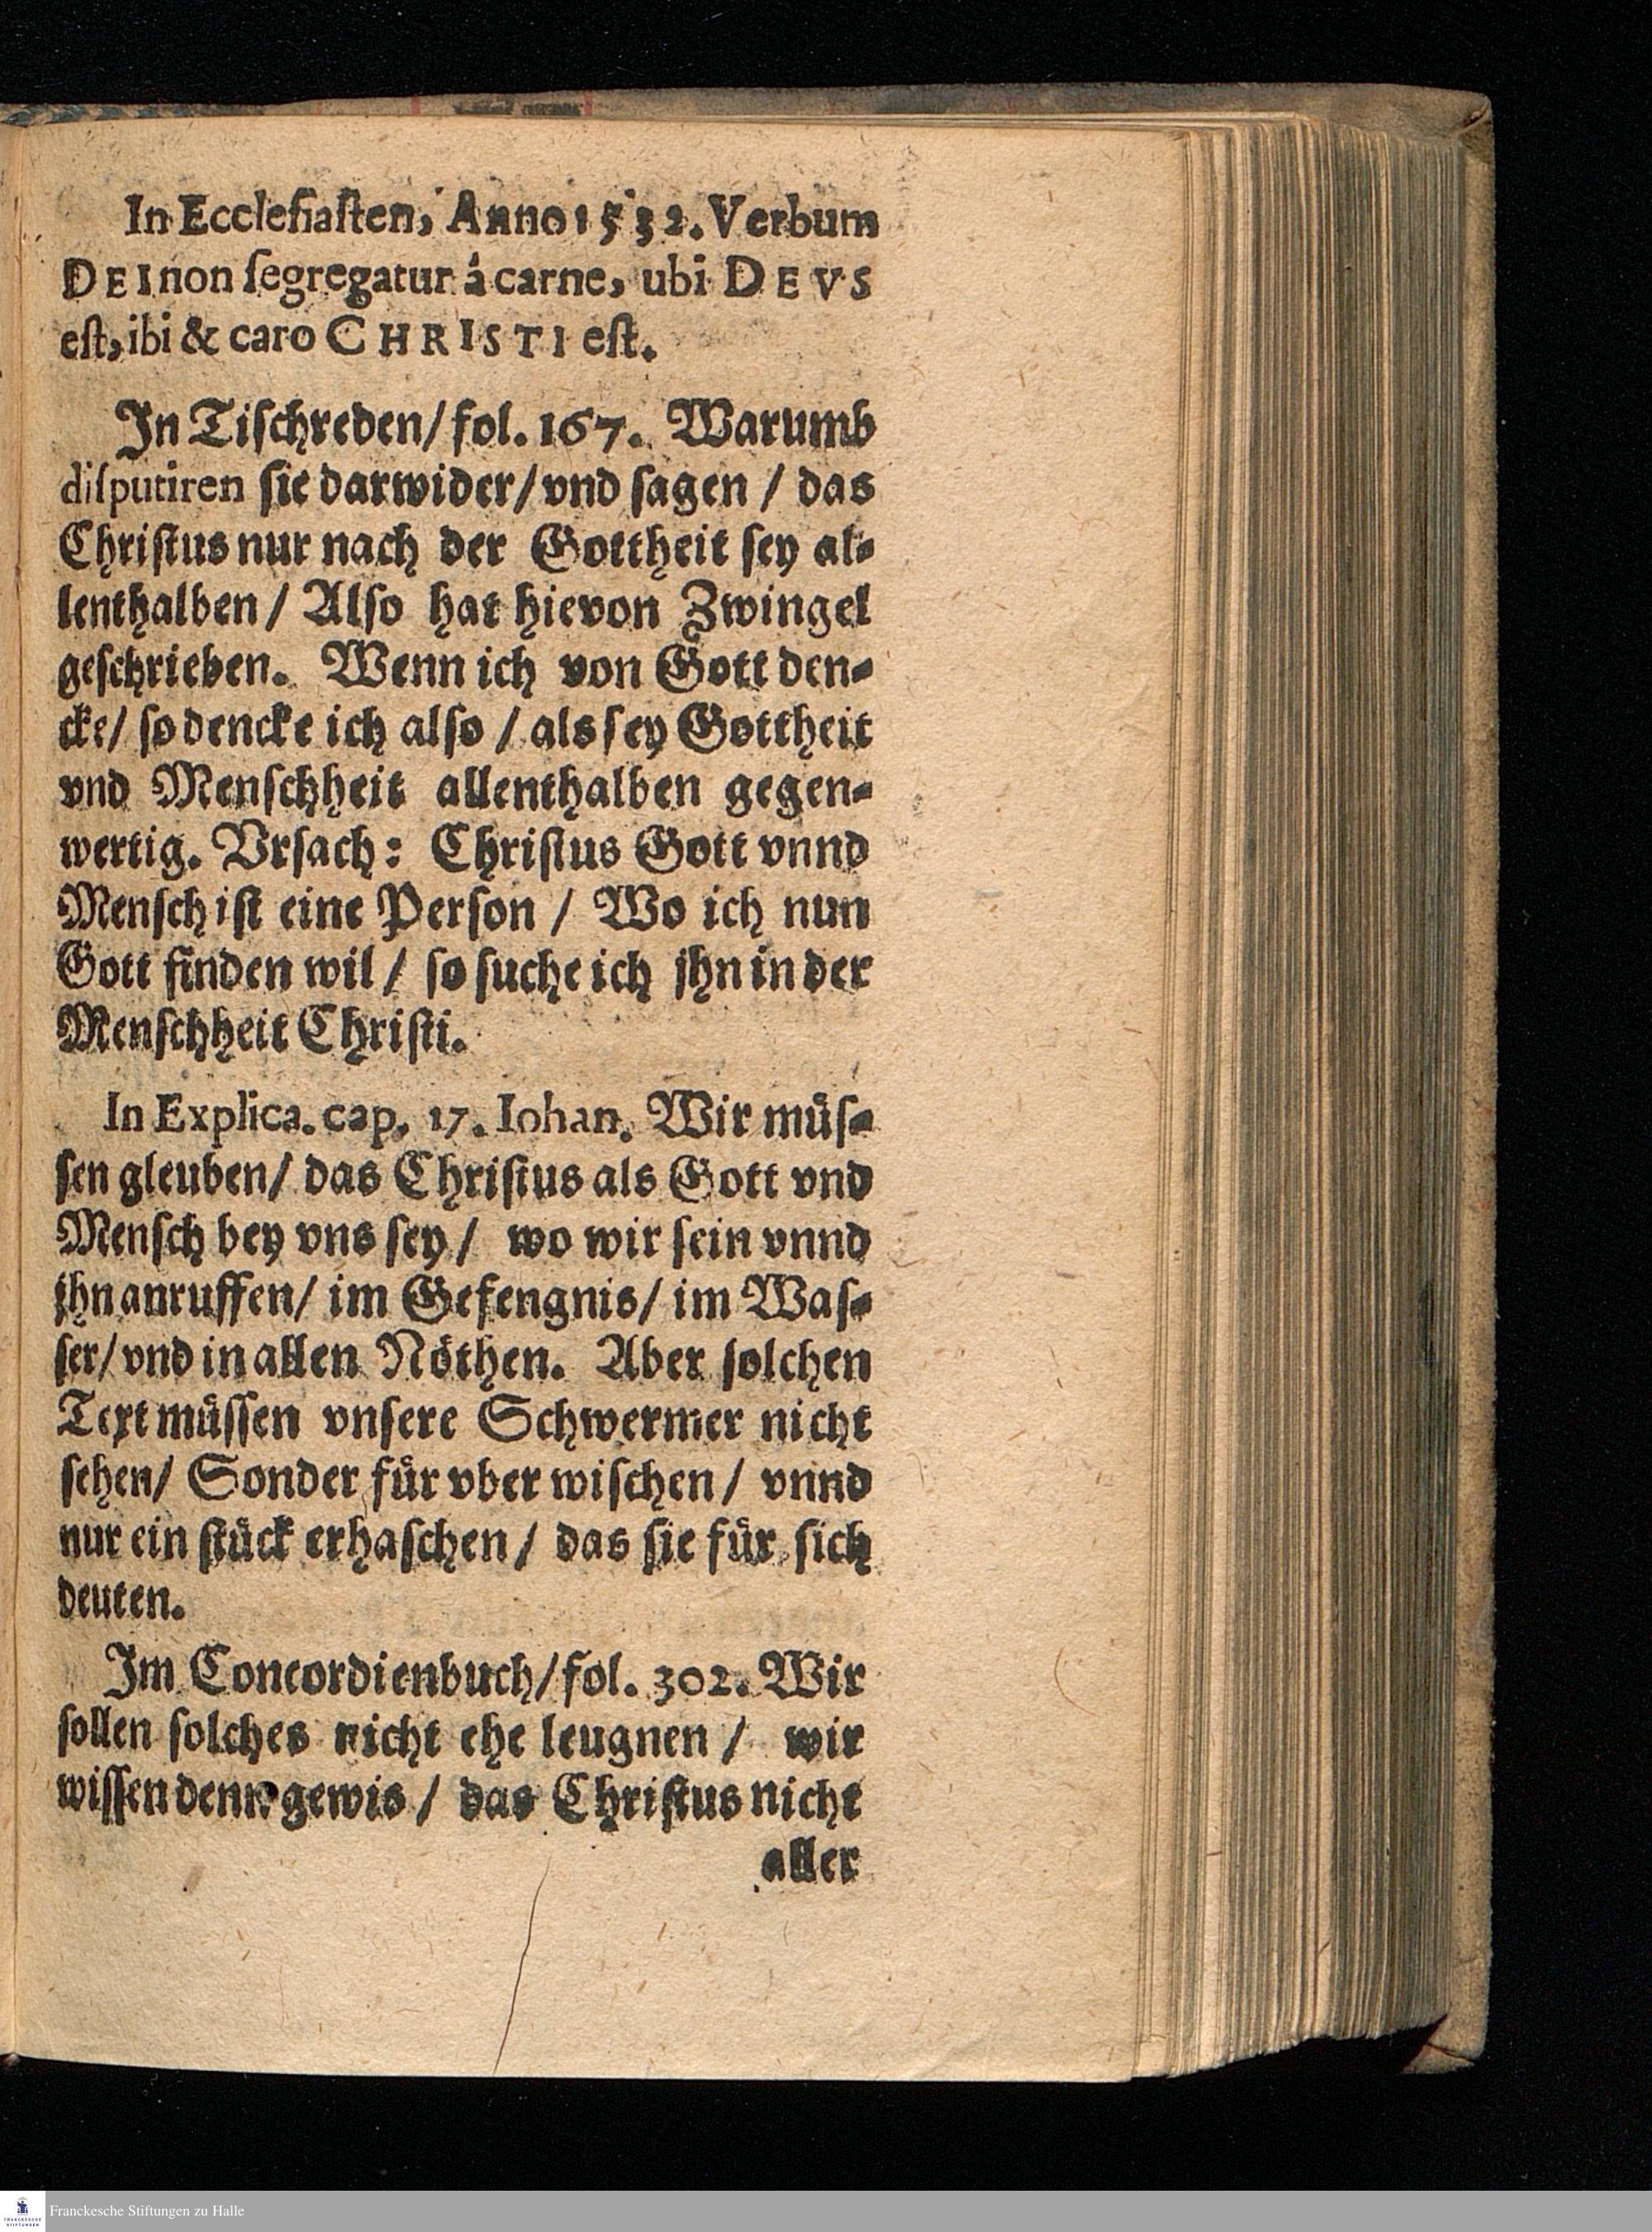 In Ecclesiasten, Anno 1532. Verbum
DEI non segregatur á carne, ubi DEVS
est, ibi & caro CHRISTI est.
In Tischreden/ fol. 167. Warumb
disputiren sie darwider/ vnd sagen / das
Christus nur nach der Gottheit sey al-
lenthalben / Also hat hievon Zwingel
geschrieben. Wenn ich von Gott den-
cke/ so dencke ich also / als sey Gottheit
vnd Menschheit allenthalben gegen-
wertig. Vrsach: Christus Gott vnnd
Mensch ist eine Person / Wo ich nun
Gott finden wil / so suche ich jhn in der
Menschheit Christi.
In Explica. cap. 17. Iohan. Wir müs-
sen gleuben/ das Christus als Gott vnd
Mensch bey vns sey / wo wir sein vnnd
jhn anruffen/ im Gefengnis/ im Was-
ser/ vnd in allen Nöthen. Aber solchen
Text müssen vnsere Schwermer nicht
sehen/ Sonder für vber wischen / vnnd
nur ein stück erhaschen / das sie für sich
deuten.
Im Concordienbuch/ fol. 302. Wir
sollen solches nicht ehe leugnen / wir
wissen denn gewis / das Christus nicht
aller
Franckesche Stiftungen zu Halle